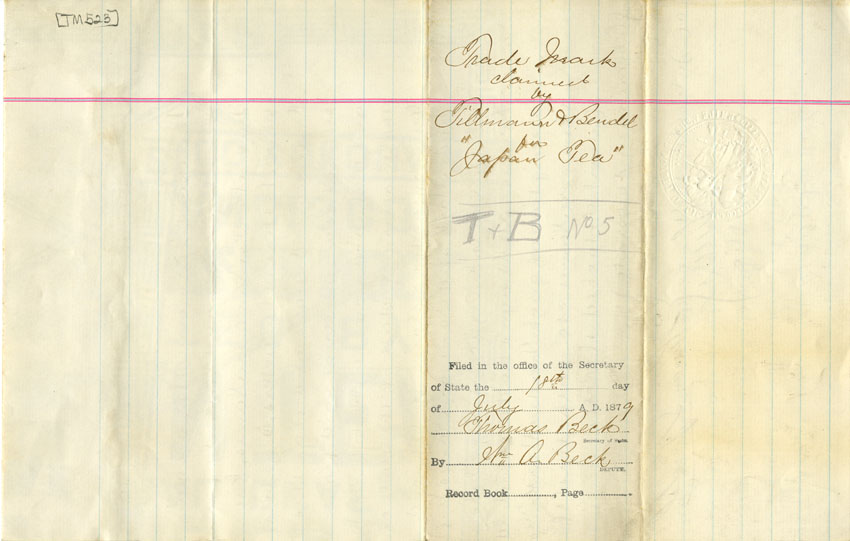 [TM523]
Trade Mark
claimed
by
Tillmann & Bendel
for
"Japan Tea"
T + B No 5
Filed in the office of the Secretary
of State the 18th day
of July A. D. 1879
Thomas Beck
Secretary of State.
By Wm A. Beck
DEPUTY.
Record Book , Page .